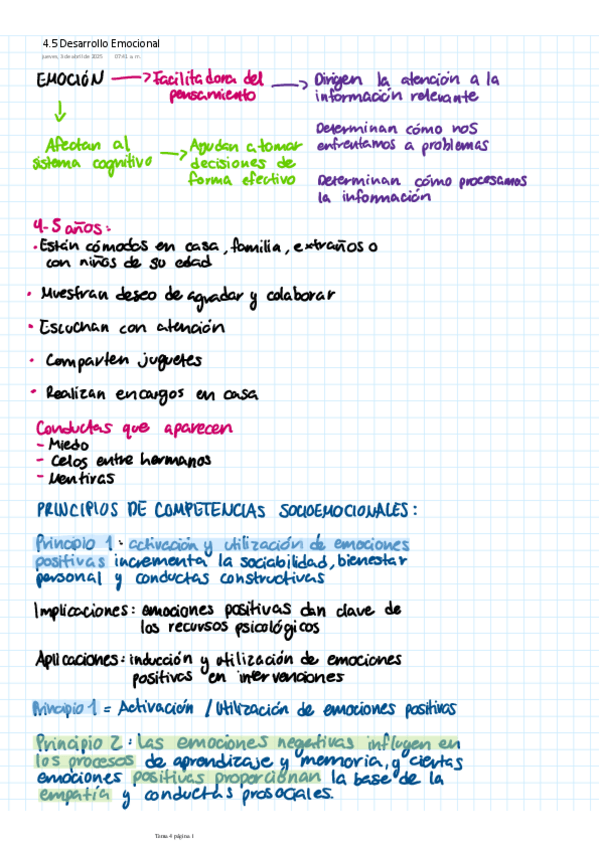 4.5 Desarrollo Emocional
jueves, 3 de abril de 2025 07:41 a. m.
EMOCIÓN → Facilitadora del pensamiento → Dirigen la atención a la información relevante
Determinan cómo nos enfrentamos a problemas
Determinan cómo procesamos la información
Afectan al sistema cognitivo → Ayudan a tomar decisiones de forma efectivo
4-5 años:
• Están cómodos en casa, familia, extraños o
con niños de su edad
• Muestran deseo de agradar y colaborar
• Escuchan con atención
• Comparten juguetes
• Realizan encargos en casa
Conductas que aparecen
- Miedo
- Celos entre hermanos
- Mentiras
PRINCIPIOS DE COMPETENCIAS SOCIOEMOCIONALES:
Principio 1: activación y utilización de emociones
positivas incrementa la sociabilidad, bienestar
personal y conductas constructivas
Implicaciones: emociones positivas dan clave de
los recursos psicológicos
Aplicaciones: inducción y utilización de emociones
positivas en intervenciones
Principio 1 = Activación / Utilización de emociones positivas
Principio 2: las emociones negativas influyen en
los procesos de aprendizaje y memoria, y ciertas
emociones positivas proporcionan la base de la
empatía y conductas prosociales.
Tema 4 página 1